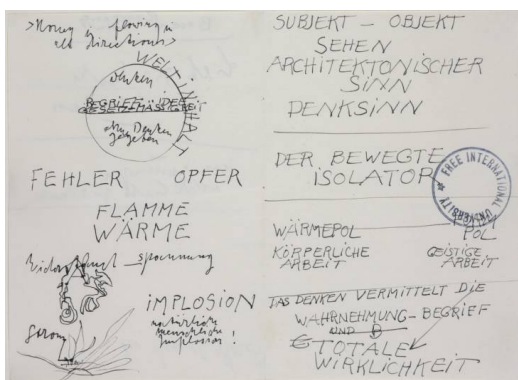 >Honig flowing in
all directions>
WELTINHALT
Denken
BEGRIFF IDEE
GESETZMÄSSIGKEIT
ohne Denken
gegeben
FEHLER OPFER
FLAMME
WÄRME
Widerstand – spannung
IMPLOSION
natürliche
menschliche
Implosion!
Strom
SUBJEKT – OBJEKT
SEHEN
ARCHITEKTONISCHER
SINN
DENKSINN
DER BEWEGTE
ISOLATOR
FREE INTERNATIONAL UNIVERSITY
WÄRMEPOL POL
KÖRPERLICHE GEISTIGE
ARBEIT ARBEIT
DAS DENKEN VERMITTELT DIE
WAHRNEHMUNG – BEGRIFF
UND B
TOTALE
WIRKLICHKEIT